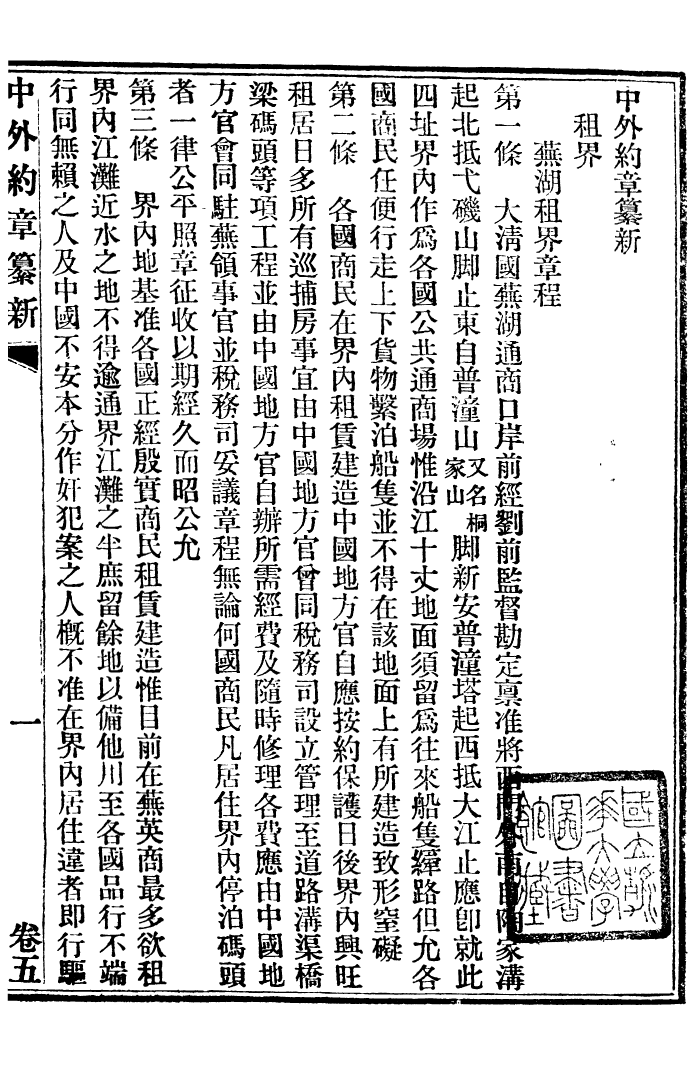 中外約章纂新
租界
蕪湖租界章程
第一條　大清國蕪湖通商口岸前經劉前監督勘定稟准將西門外南自陶家溝
起北抵弋磯山脚止東自普潼山又名桐家山脚新安普潼塔起西抵大江止應卽就此
四址界內作爲各國公共通商場惟沿江十丈地面須留爲往來船隻縴路但允各
國商民任便行走上下貨物繫泊船隻並不得在該地面上有所建造致形窒礙
第二條　各國商民在界內租賃建造中國地方官自應按約保護日後界內興旺
租居日多所有巡捕房事宜由中國地方官曾同稅務司設立管理至道路溝渠橋
梁碼頭等項工程並由中國地方官自辦所需經費及隨時修理各費應由中國地
方官會同駐蕪領事官並稅務司妥議章程無論何國商民凡居住界內停泊碼頭
者一律公平照章征收以期經久而昭公允
第三條　界內地基准各國正經殷實商民租賃建造惟目前在蕪英商最多欲租
界內江灘近水之地不得逾通界江灘之半庶留餘地以備他川至各國品行不端
行同無賴之人及中國不安本分作奸犯案之人概不准在界內居住違者即行驅
中外約章纂新
一
卷五
國立清華大學圖書館藏